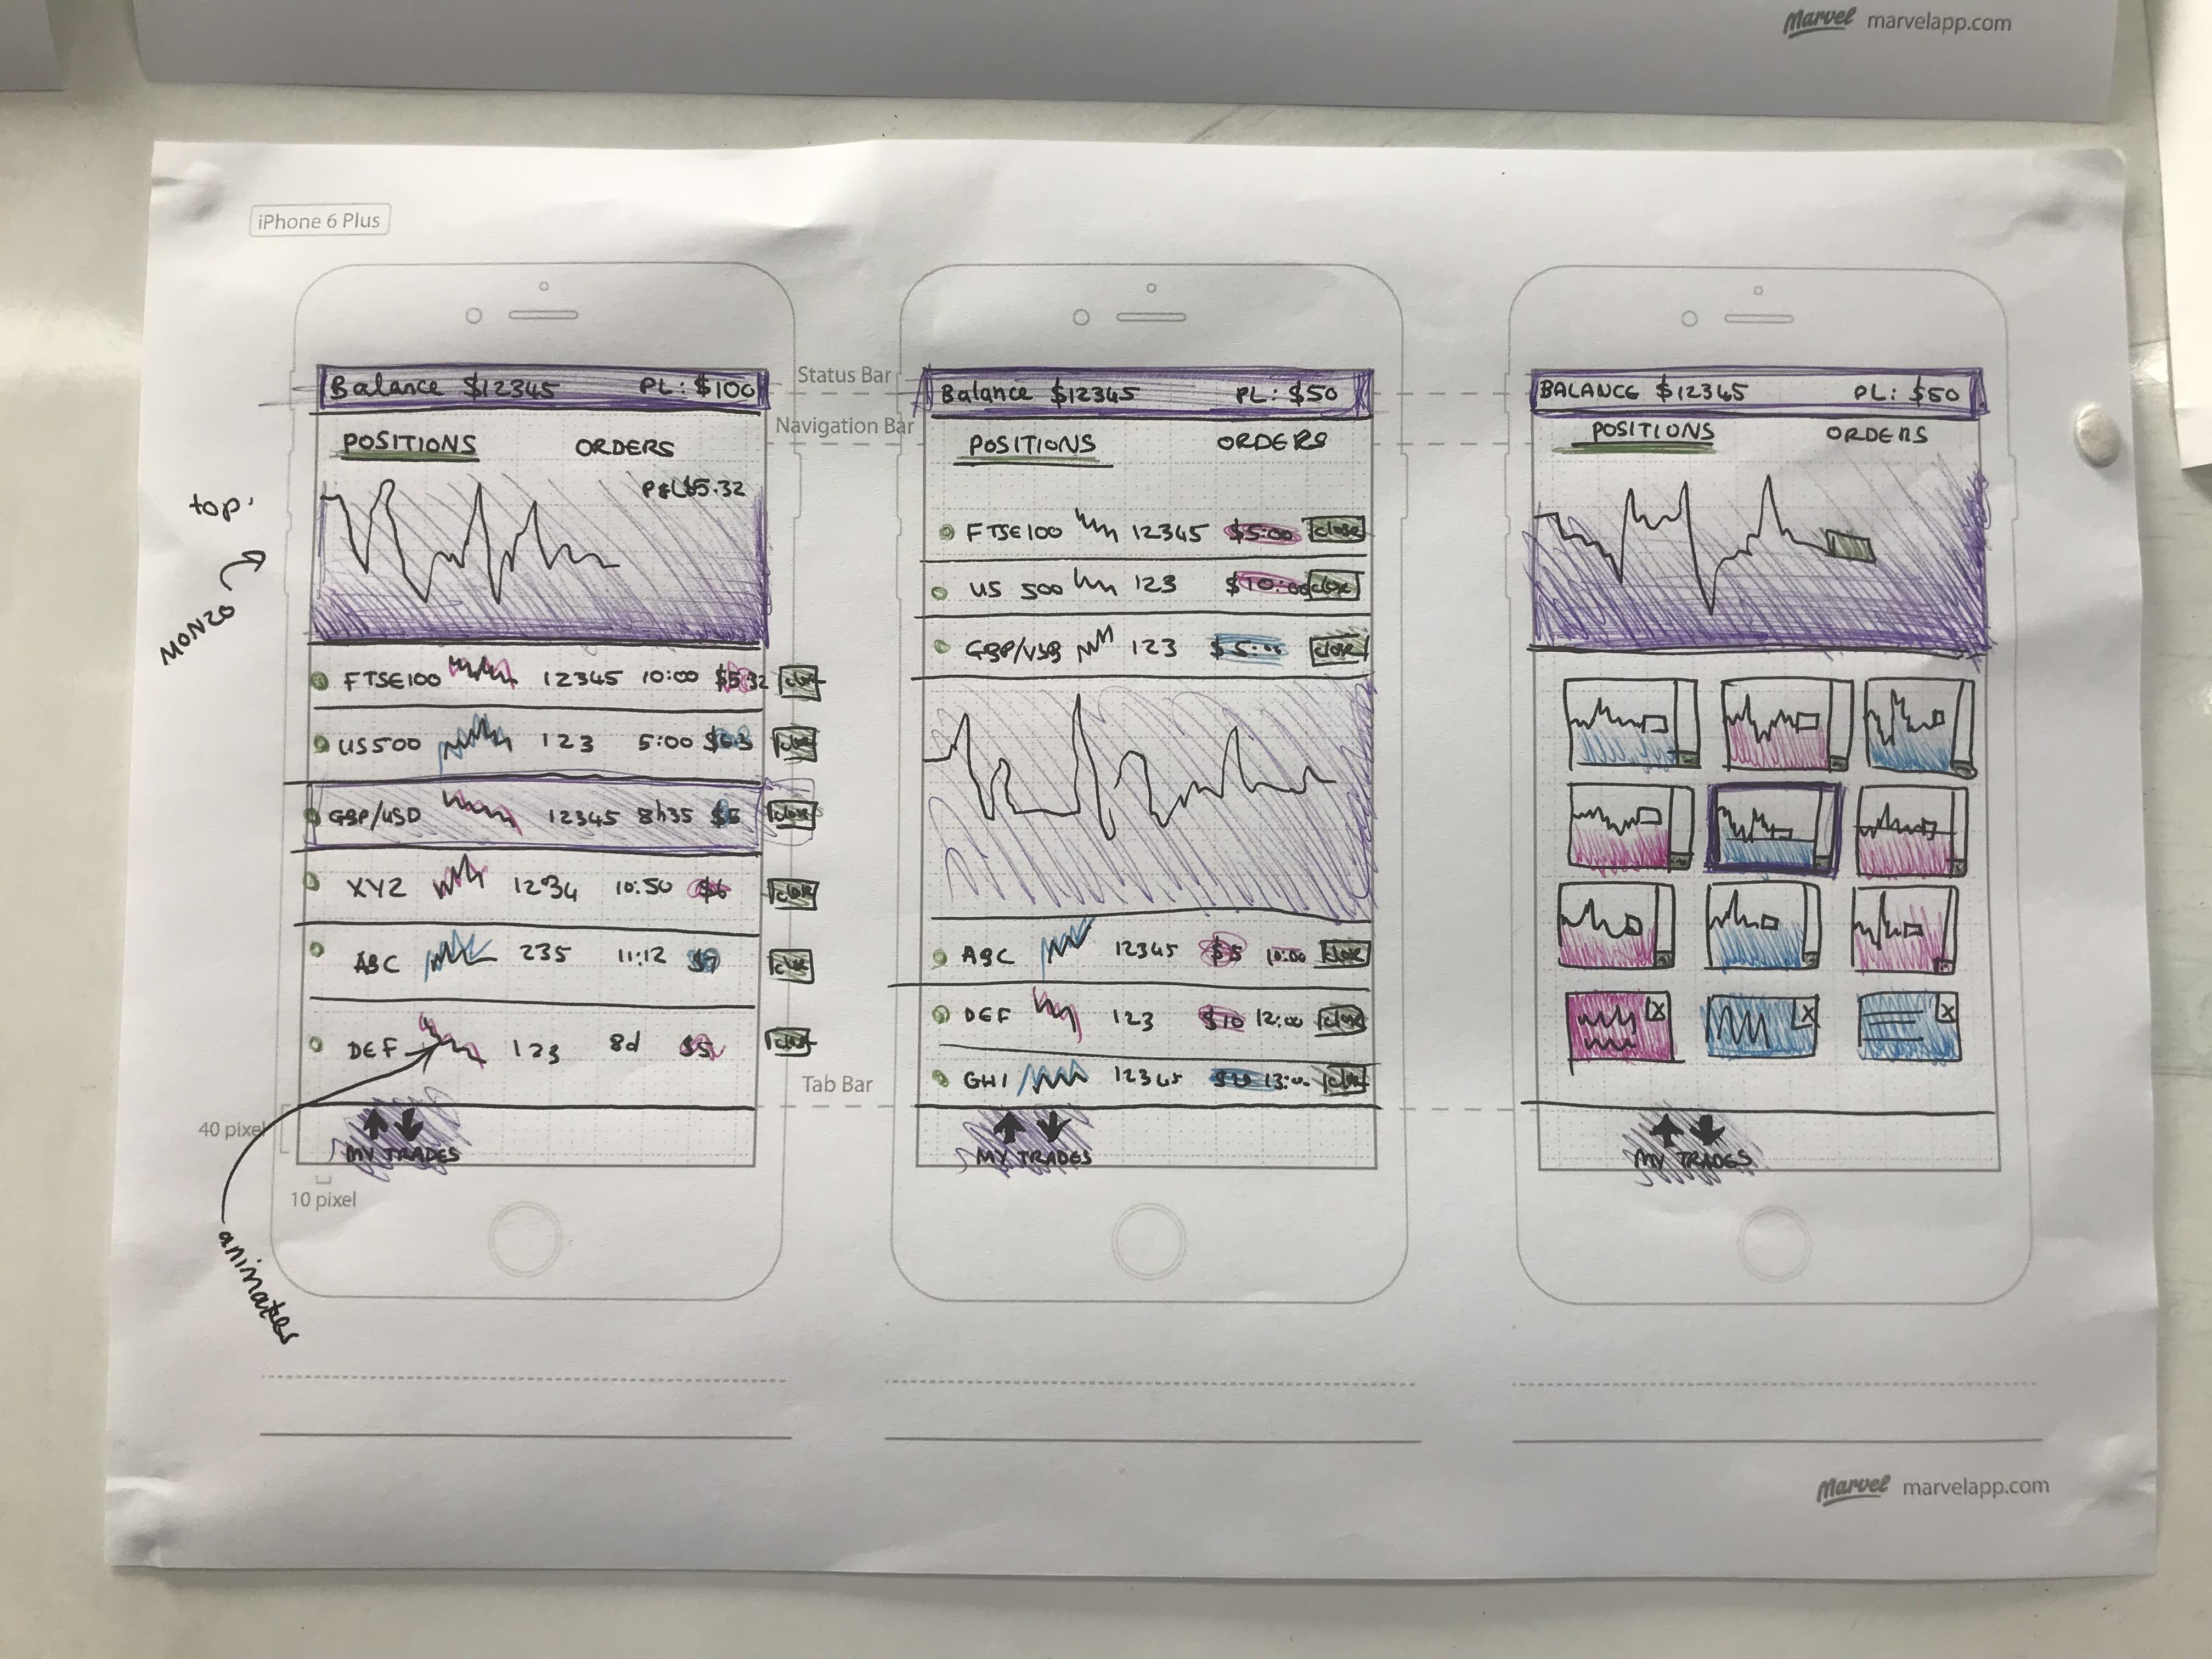 Marvel marvelapp.com
iPhone 6 Plus
top.
MONZO
Balance $12345 PL: $100
POSITIONS ORDERS
P&L $5.32
FTSE100 12345 10:00 $5.32 close
US500 123 5:00 close
GBP/USD 12345 8h35 $5 close
XYZ 1234 10:50 $6 close
ABC 235 11:12 $7 close
DEF 123 8d $5 close
MY TRADES
animates
40 pixel
10 pixel
Status Bar
Navigation Bar
Tab Bar
Balance $12345 PL: $50
POSITIONS ORDERS
FTSE100 12345 $5:00 close
US 500 123 $10:00 close
GBP/USD 123 $5:00 close
ABC 12345 $5 10:00 close
DEF 123 $10 12:00 close
GHI 12345 13:00 close
MY TRADES
BALANCE $12345 PL: $50
POSITIONS ORDERS
X X X
MY TRADES
Marvel marvelapp.com